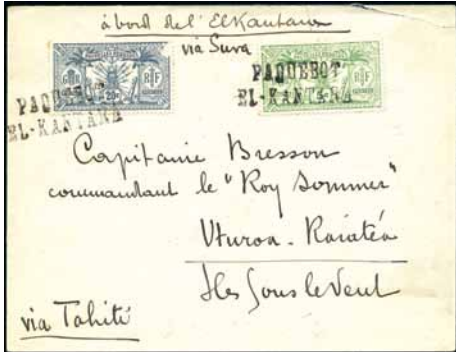 à bord de l'ElKantara
via Suva
G R R F
20c
R F
5c
PAQUEBOT
EL-KANTARA
PAQUEBOT
EL-KANTARA
Capitaine Bresson
commandant le "Roy Sommer"
Uturoa - Raiatéa
Iles Sous le Vent
via Tahiti